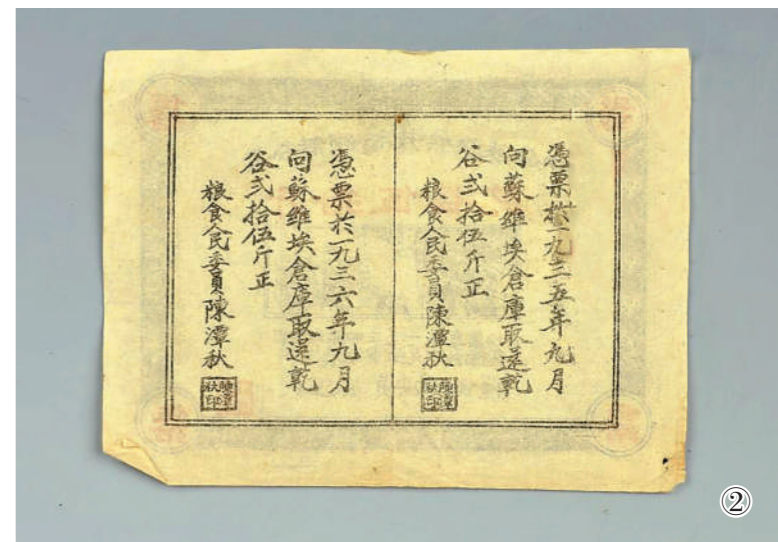 憑票於一九三五年九月
向蘇維埃倉庫取還乾
谷弍拾伍斤正
粮食人民委員陳潭秋
陳潭秋印
憑票於一九三六年九月
向蘇維埃倉庫取還乾
谷弍拾伍斤正
粮食人民委員陳潭秋
陳潭秋印
②